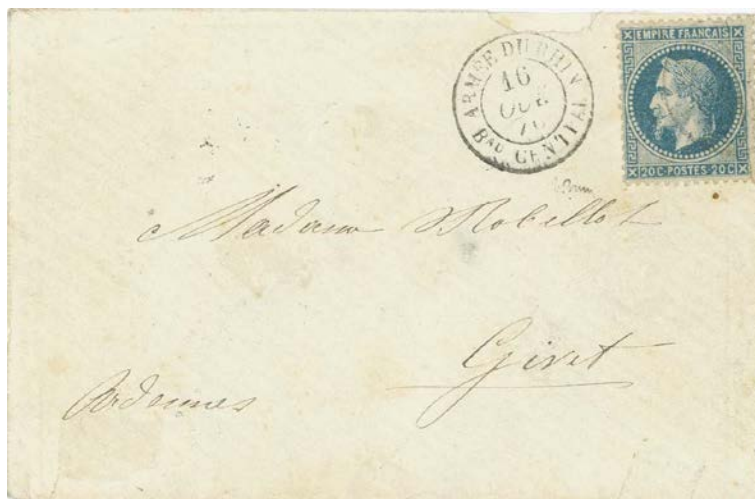 ARMÉE DU RHIN
16
70
Bau CENTRAL
EMPIRE FRANCAIS
20C·POSTES·20C
Madame Robillot
Givet
Ardennes